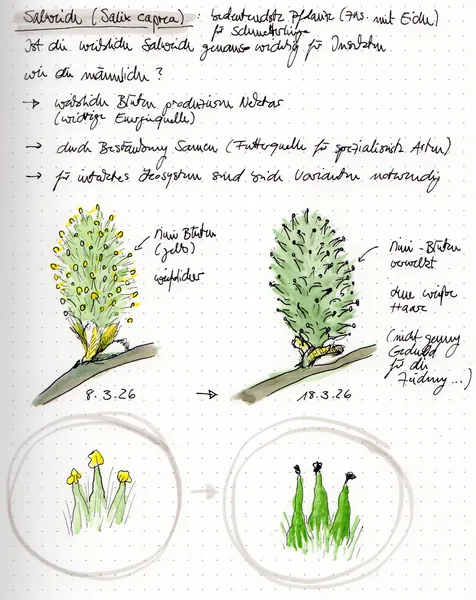 Salweide (Salix caprea) : bedeutendste Pflanze (zus. mit Eiche)
für Schmetterlinge
Ist die weibliche Salweide genauso wichtig für Insekten
wie die männliche?
→ weibliche Blüten produzieren Nektar
(wichtige Energiequelle)
→ durch Bestäubung Samen (Futterquelle für spezialisierte Arten)
→ für intaktes Ökosystem sind beide Varianten notwendig
Mini Blüten
(gelb)
weiblicher
Mini-Blüten
verwelkt
ohne weiße
Haare
(nicht genug
Geduld
für die
Zeichnung...)
8.3.26 → 18.3.26